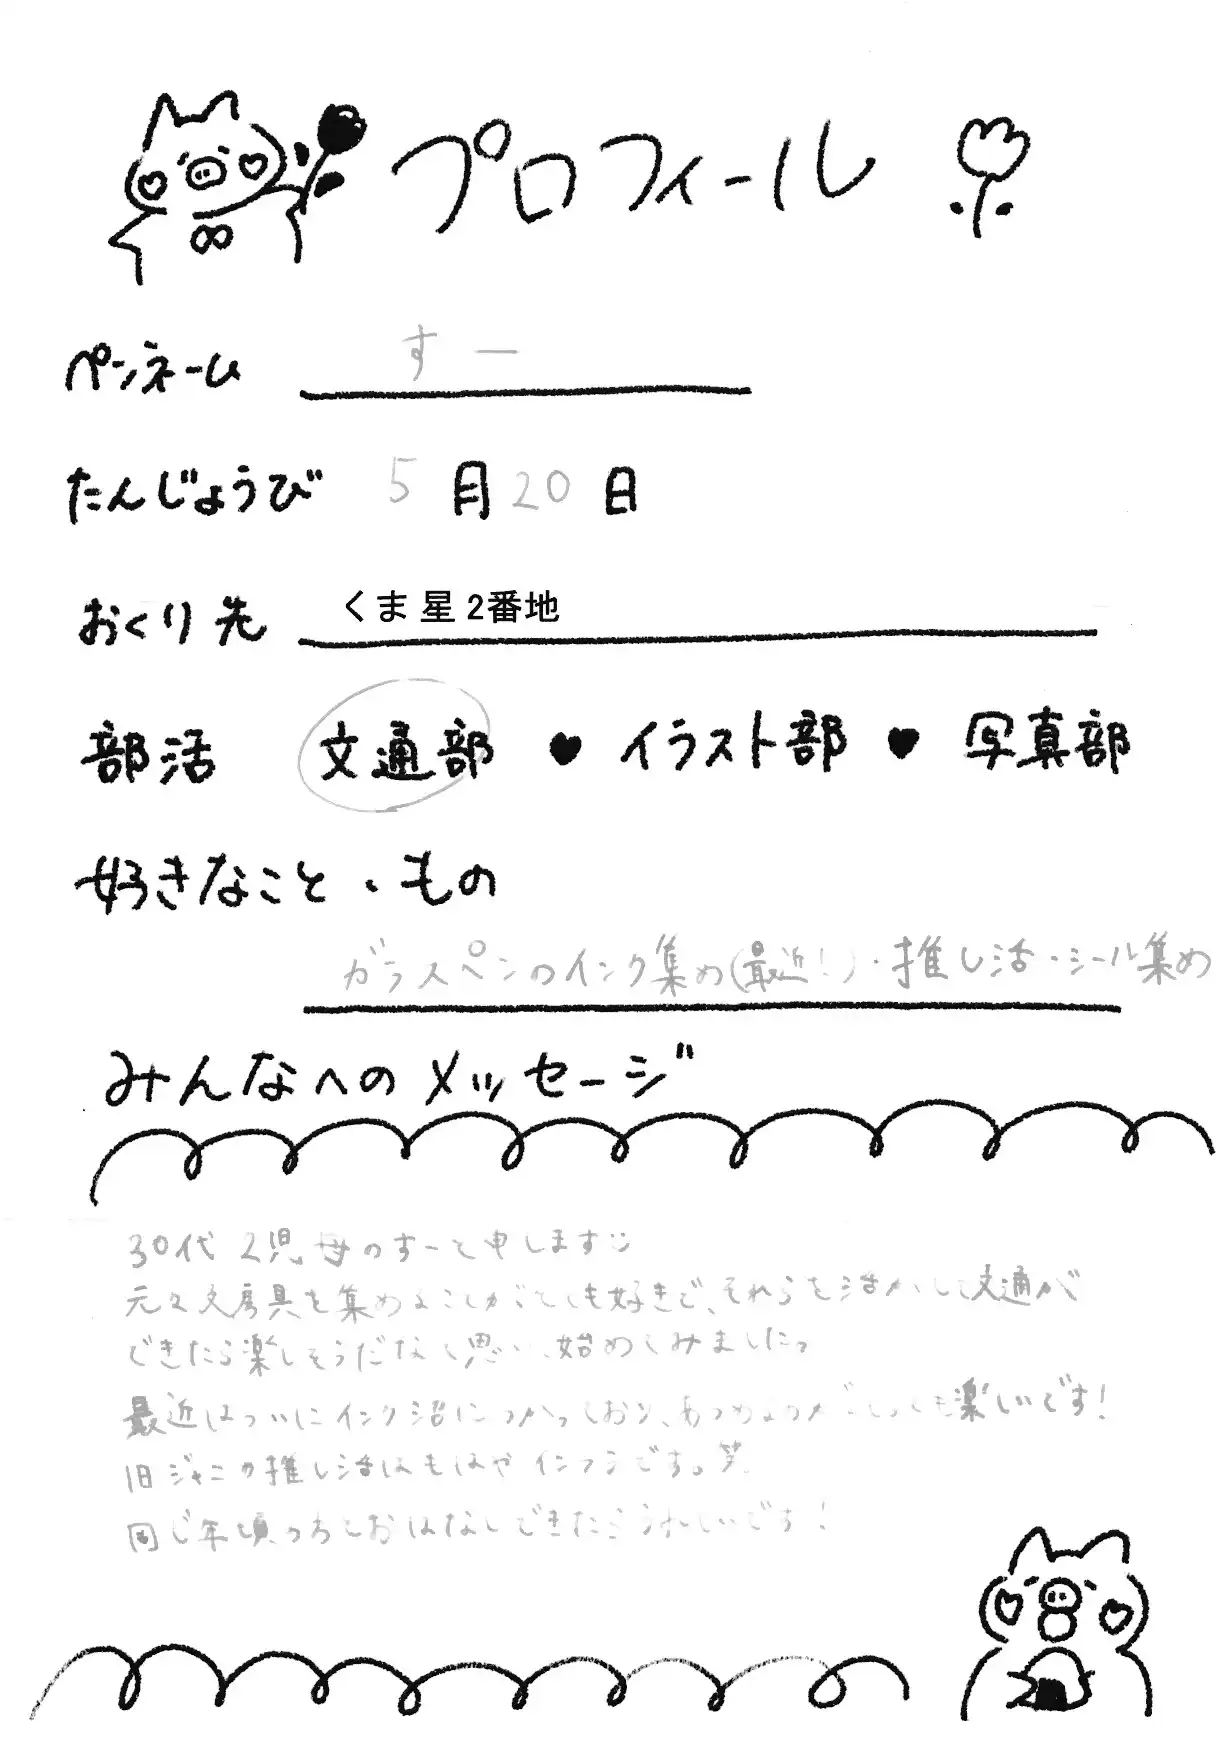 プロフィール
ペンネーム すー
たんじょうび 5月20日
おくり先 くま星2番地
部活 文通部 ♥ イラスト部 ♥ 写真部
好きなこと・もの
ガラスペンのインク集め(最近!)・推し活・シール集め
みんなへのメッセージ
30代2児母のすーと申します
元々文房具を集めることがとても好きで、それらを活かして文通が
できたら楽しそうだなと思い、始めてみました。
最近はついにインク沼につかっており、あつめるのがとっても楽しいです!
旧ジャニの推し活はもはやインフラです。笑
同じ年頃の方とおはなしできたらうれしいです!